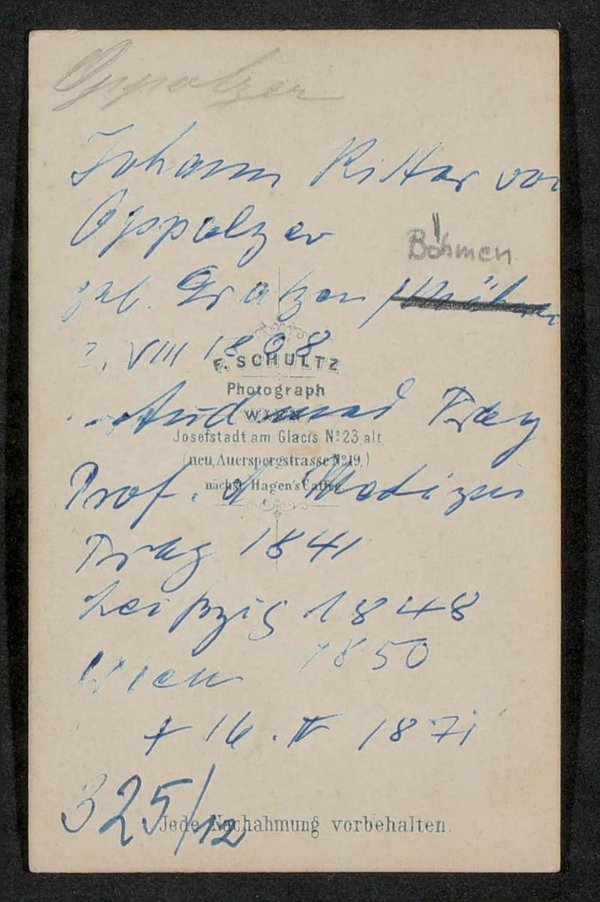 Oppolzer
Johann Ritter von
Oppolzer
Böhmen
geb. Gratzen / Mähren
VIII 1808
F. SCHULTZ
Photograph
WIEN
Josefstadt am Glacis No 23, alt
(neu, Auerspergstrasse No 19,)
nächst Hagen's Caffee
stud med Prag
Prof. d. Medizin
Prag 1841
Leipzig 1848
Wien 1850
+ 16. IV 1871
325/12
Jede Nachahmung vorbehalten.